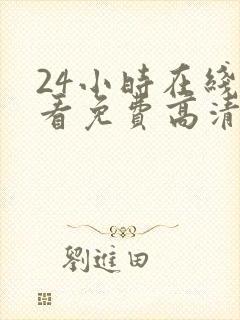 24小時在綫
看免費高清
劉進田